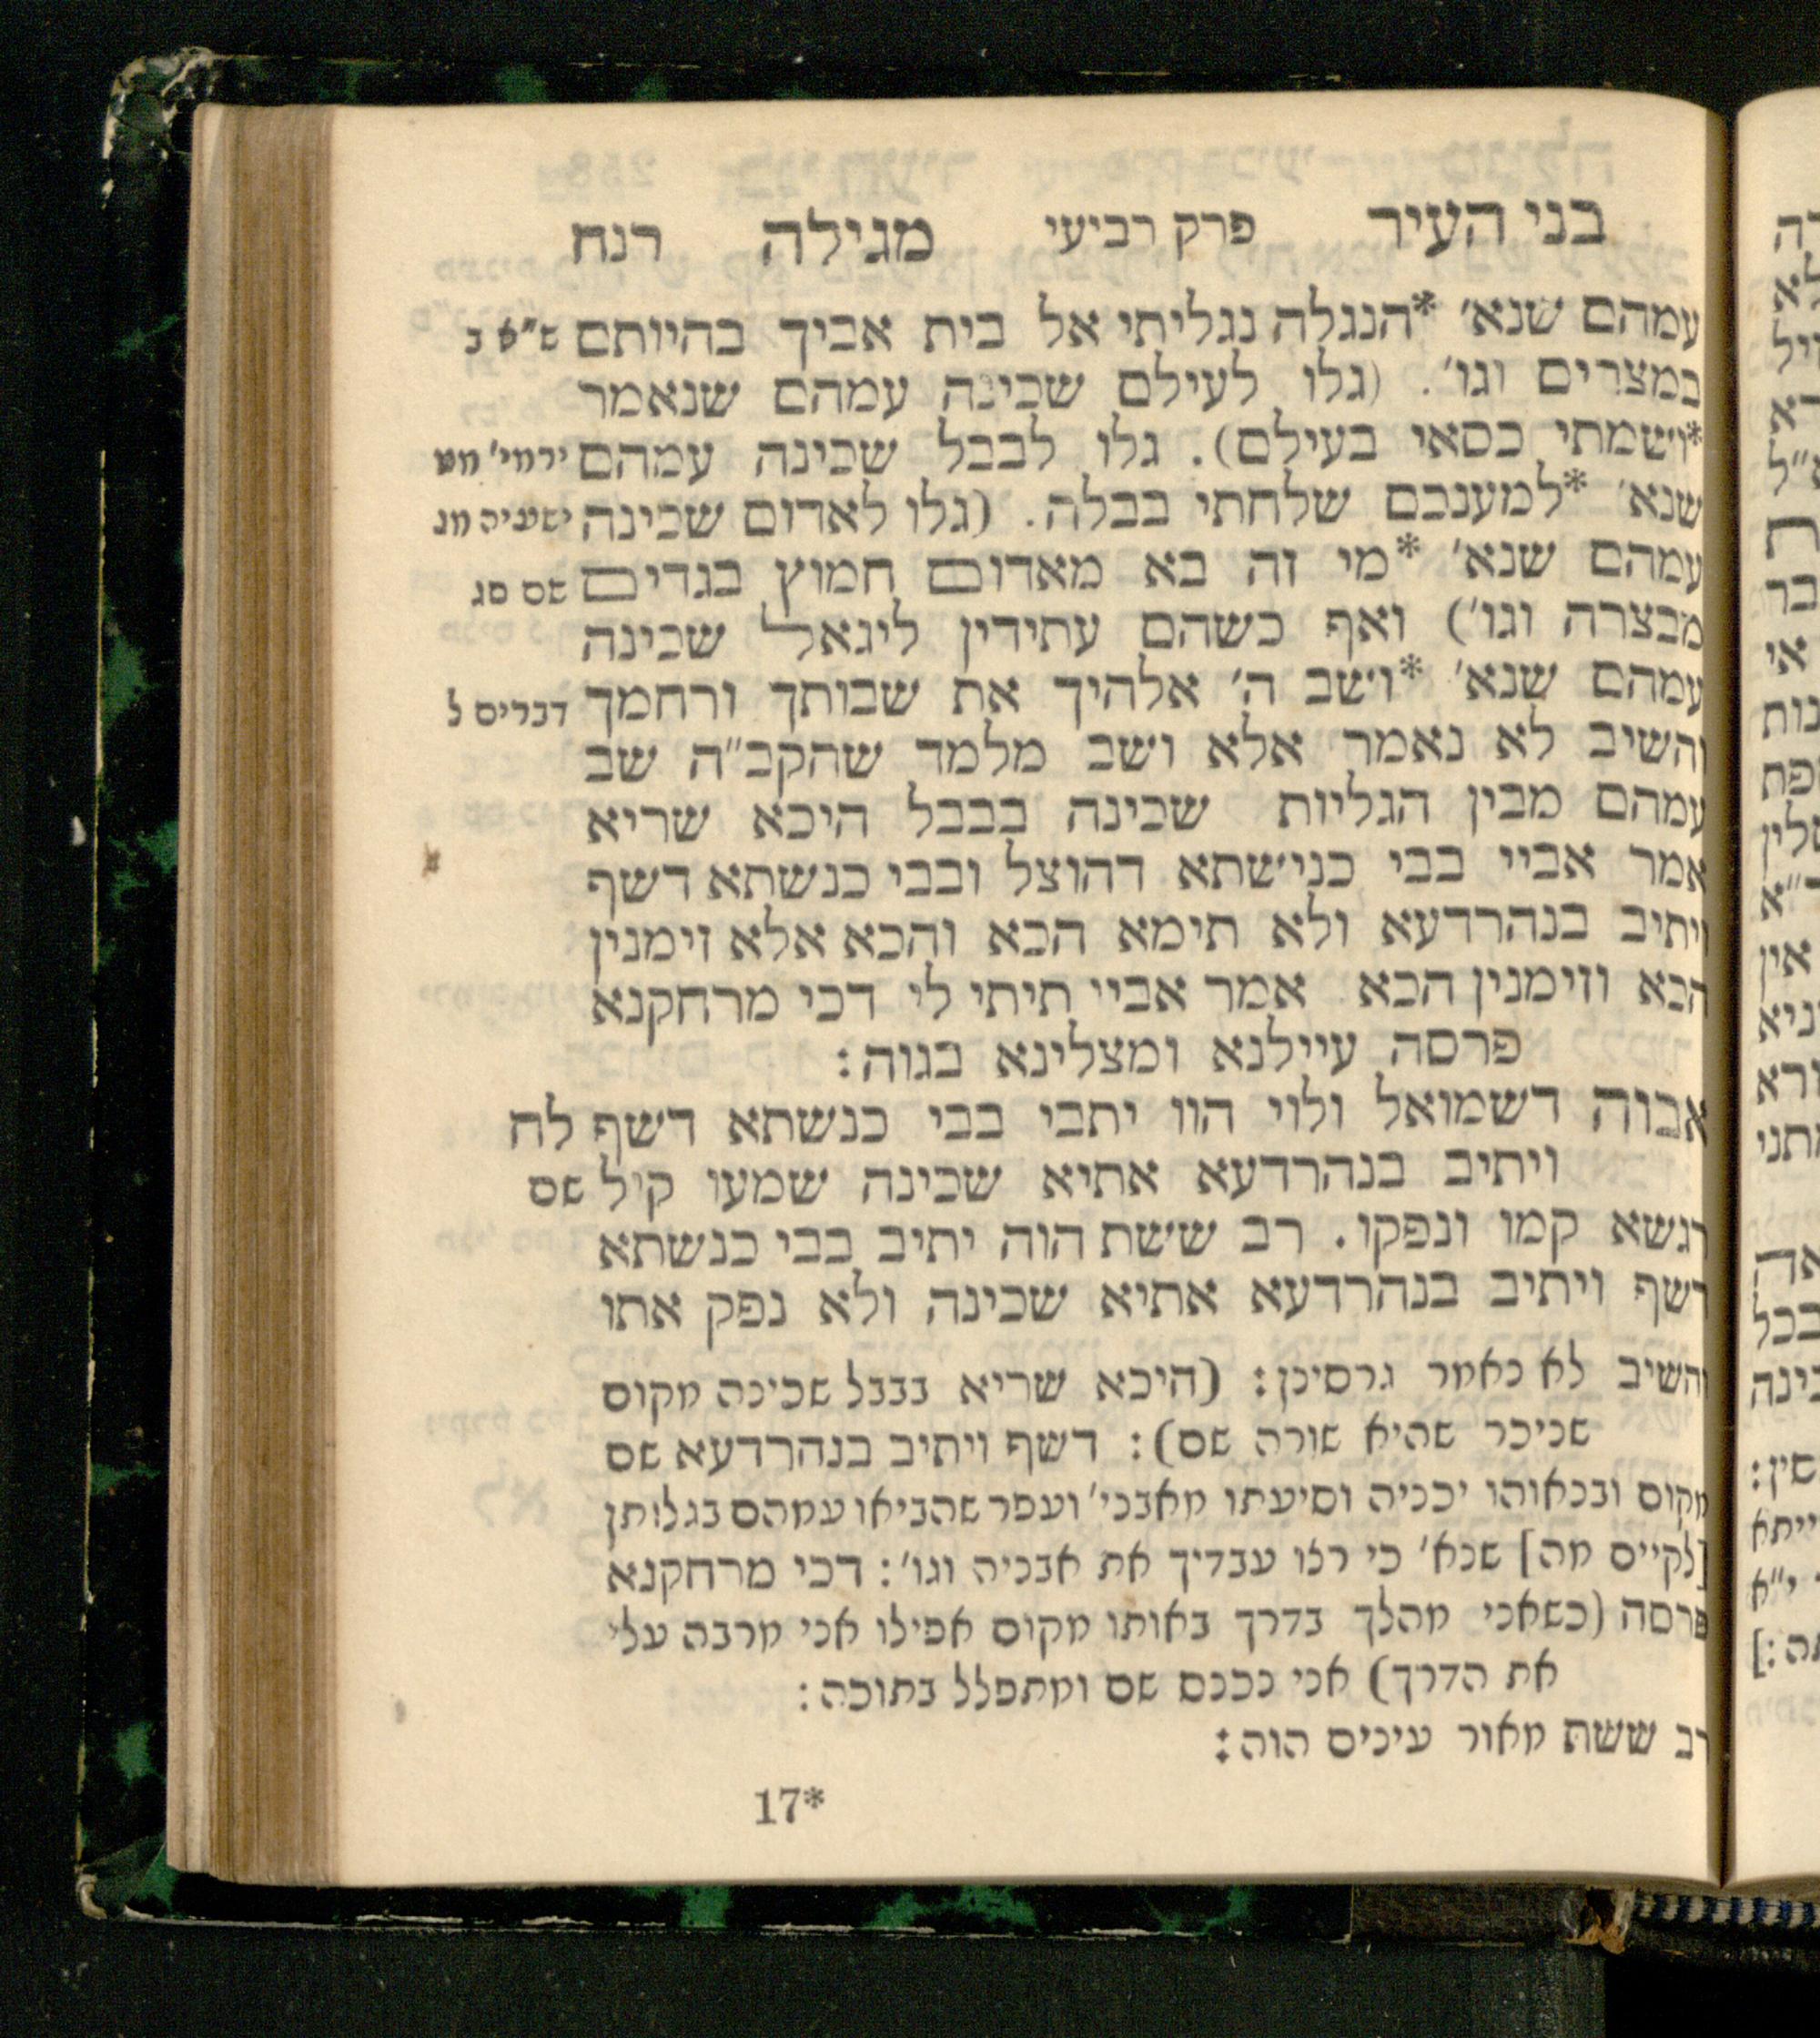 בני העיר פרק רביעי מגילה רנח
עמהם שנא׳ *הנגלה נגליתי אל בית אביך בהיותם ש״א ב
במצרים וגו׳. (גלו לעילם שכינה עמהם שנאמר
*ושמתי כסאי בעילם). גלו לבבל שכינה עמהם ירמי׳ מט
שנא׳ *למענכם שלחתי בבלה. (גלו לאדום שכינה ישעיה מג
עמהם שנא׳ *מי זה בא מאדום חמוץ בגדים שם סג
מבצרה וגו׳) ואף כשהם עתידין ליגאל שכינה
עמהם שנא׳ *ושב ה׳ אלהיך את שבותך ורחמך דברים ל
והשיב לא נאמר אלא ושב מלמד שהקב״ה שב
עמהם מבין הגליות שכינה בבבל היכא שריא
אמר אביי בבי כנישתא דהוצל ובבי כנשתא דשף
ויתיב בנהרדעא ולא תימא הכא והכא אלא זימנין
הכא וזימנין הכא אמר אביי תיתי לי דכי מרחקנא
פרסה עיילנא ומצלינא בגוה:
אבוה דשמואל ולוי הוו יתבי בבי כנשתא דשף לח
ויתיב בנהרדעא אתיא שכינה שמעו קול שם
רגשא קמו ונפקו. רב ששת הוה יתיב בבי כנשתא
דשף ויתיב בנהרדעא אתיא שכינה ולא נפק אתו
והשיב לא נאמר גרסינן: (היכא שריא בבבל שכינה מקום
שניכר שהיא שורה שם): דשף ויתיב בנהרדעא שם
מקום ובנאוהו יכניה וסיעתו מאבני׳ ועפר שהביאו עמהם בגלותן
[לקיים מה] שנא׳ כי רצו עבדיך את אבניה וגו׳: דכי מרחקנא
פרסה (כשאני מהלך בדרך באותו מקום אפילו אני מרבה עלי
את הדרך) אני נכנס שם ומתפלל בתוכה:
רב ששת מאור עינים הוה:
17*